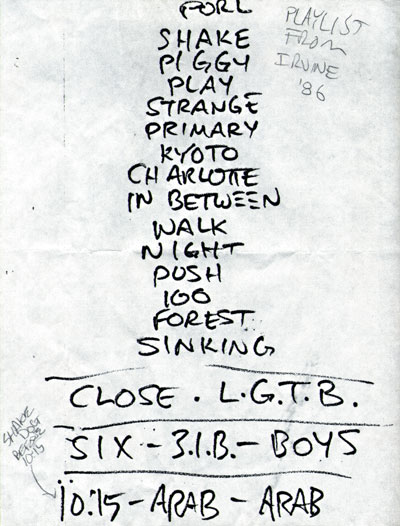 PORL
PLAYLIST
FROM
IRVINE
'86
SHAKE
PIGGY
PLAY
STRANGE
PRIMARY
KYOTO
CHARLOTTE
IN BETWEEN
WALK
NIGHT
PUSH
100
FOREST
SINKING
CLOSE . L.G.T.B.
SIX - 3.I.B. - BOYS
SHAKE
BEFORE
10:15
10:15 - ARAB - ARAB